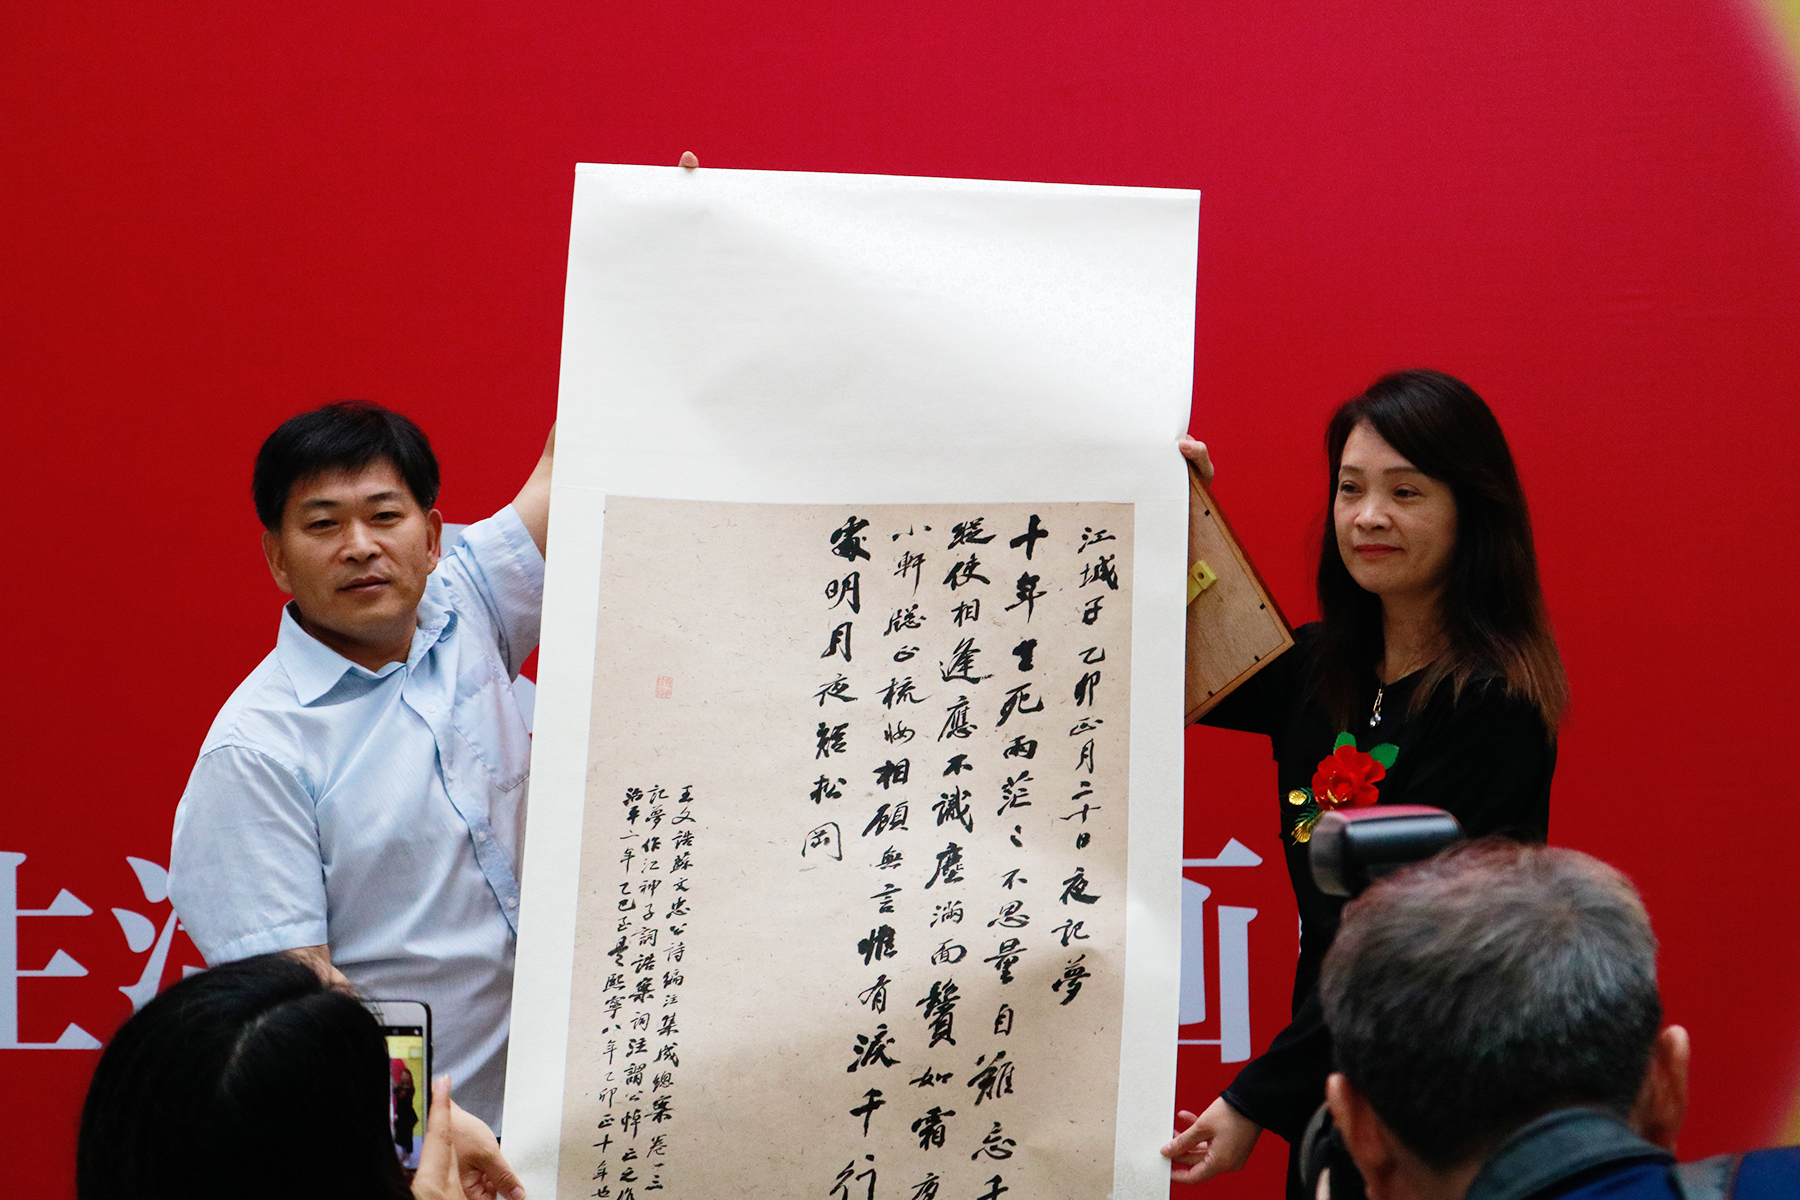 江城子乙卯正月二十日夜記夢
十年生死兩茫〻不思量自難忘千
縱使相逢應不識塵滿面鬢如霜夜
小軒窓正梳妝相顧無言惟有淚千行
處明月夜短松岡
王文誥蘇文忠公詩編注集成總案卷十三
記夢作江神子詞誥案詞注謂公悼亡之作
治平二年乙巳至是熙寧八年乙卯正十年也
生活
画